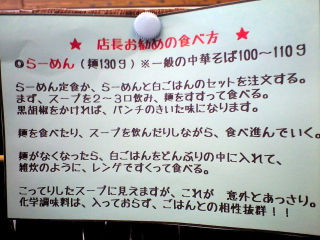 ★ 店長お勧めの食べ方 ★
◎らーめん(麺130g)※一般の中華そば100~110g
らーめん定食か、らーめんと白ごはんのセットを注文する。
まず、スープを2~3口飲み、麺をすすって食べる。
黒胡椒をかければ、パンチのきいた味になります。
麺を食べたり、スープを飲んだりしながら、食べ進んでいく。
麺がなくなったら、白ごはんをどんぶりの中に入れて、
雑炊のように、レンゲですくって食べる。
こってりしたスープに見えますが、これが 意外とあっさり。
化学調味料は、入っておらず、ごはんとの相性抜群!!